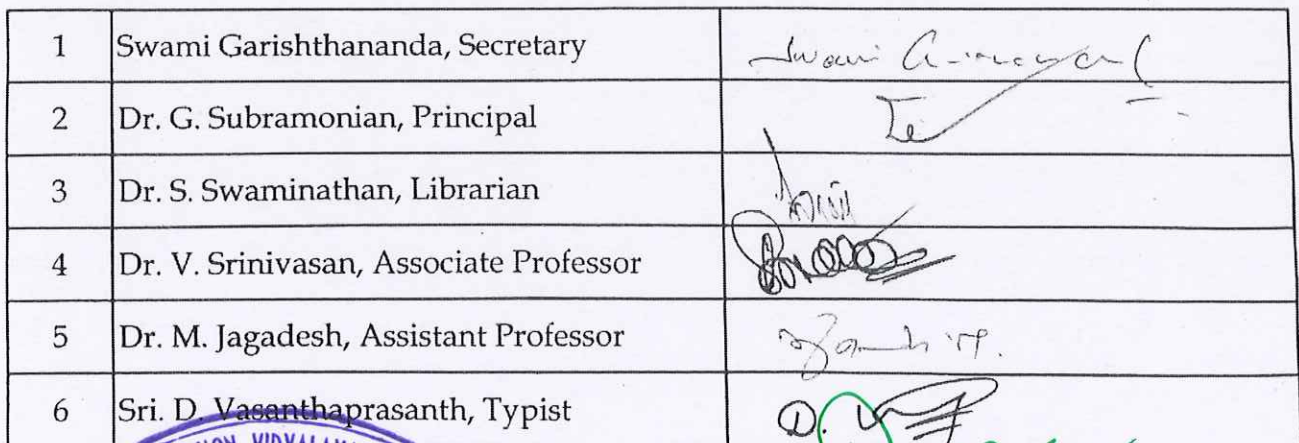 1 Swami Garishthananda, Secretary
2 Dr. G. Subramonian, Principal
3 Dr. S. Swaminathan, Librarian
4 Dr. V. Srinivasan, Associate Professor
5 Dr. M. Jagadesh, Assistant Professor
6 Sri. D. Vasanthaprasanth, Typist